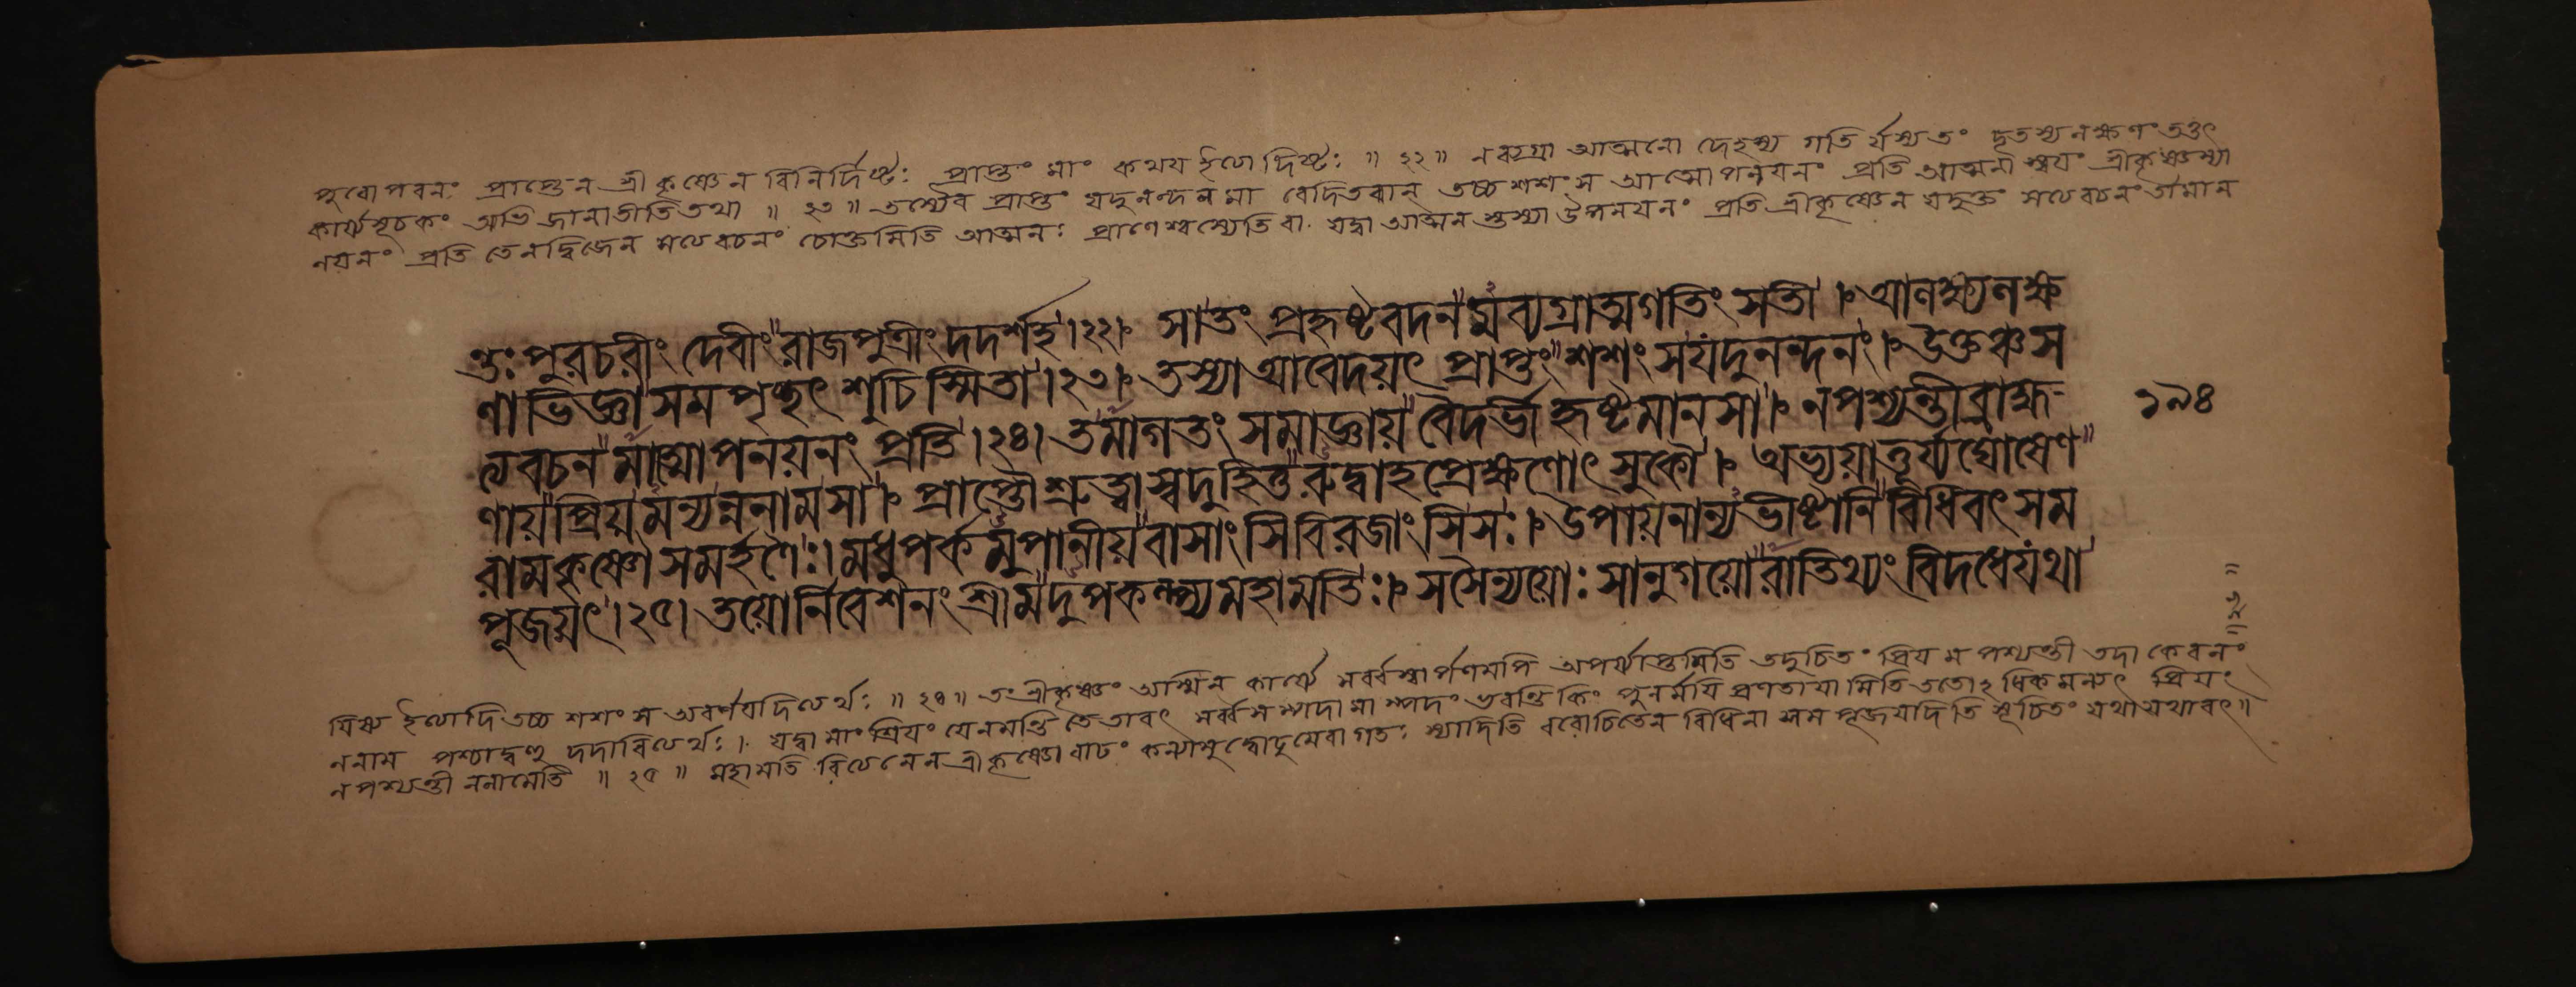 পুরোপবনং প্রাপ্তেন শ্রীকৃষ্ণেন বিনির্দিষ্টঃ প্রাপ্তং মাং কথয় ইত্যাদিষ্টঃ ॥ ২২ ॥ ন ব্যগ্রা আত্মনো দেহস্য গতির্যস্য তং দূতস্য লক্ষণং তত্তৎ
কার্য্যসূচকং অভিজানাতীতি তথা ॥ ২৩ ॥ তস্যৈব প্রাপ্তং যদুনন্দনমাবেদিতবান্ তচ্চ শশংস আত্মোপনয়নং প্রতি আত্মনা স্বয়ং শ্রীকৃষ্ণস্যা
নয়নং প্রতি তেন দ্বিজেন সত্যবচনং চোক্তমিতি আত্মনঃ প্রাণেশ্বস্যেতি বা যদ্বা আত্মনস্তস্যা উপনয়নং প্রতি শ্রীকৃষ্ণেন যদুক্তং সত্যবচনং
ন্তঃপুরচরীং দেবীং রাজপুত্রীং দদর্শ হ ।২২। সা তং প্রহৃষ্টবদনমব্যগ্রাত্মগতিং সতী । আলক্ষ্য লক্ষ
ণাভিজ্ঞা সমপৃচ্ছৎ শুচিস্মিতা ।২৩। তস্যা আবেদয়ৎ প্রাপ্তং শশংস যদুনন্দনং । উক্তঞ্চ স
ত্যবচনমাত্মোপনয়নং প্রতি ।২৪। তমাগতং সমাজ্ঞায় বৈদর্ভী হৃষ্টমানসা । ন পশ্যন্তী ব্রাহ্ম
১৯৪
ণায় প্রিয়মন্যন্ননাম সা । প্রাপ্তৌ শ্রুত্বা স্বদুহিতুরুদ্বাহপ্রেক্ষণোৎসুকৌ । অভ্যয়াত্তূর্য্যঘোষেণ
রামকৃষ্ণৌ সমর্হণৈঃ । মধুপর্কমুপানীয় বাসাংসি বিরজাংসি সঃ । উপায়নান্যভীষ্টানি বিধিবৎ সম
পূজয়ৎ ।২৫। তয়োর্নিবেশনং শ্রীমদুপকল্প্য মহামতিঃ । সসৈন্যয়োঃ সানুগয়োরাতিথ্যং বিদধে যথা
ইত্যাদি তচ্চ শশংস অবর্ণয়দিত্যর্থঃ ॥ ২৪ ॥ তং শ্রীকৃষ্ণং অস্মিন কার্য্যে সর্ব্বস্বার্পণমপি অপর্য্যাপ্তমিতি তদুচিতং প্রিয়মপশ্যন্তী তদা কেবলং
ননাম পশ্চাদ্বহু দদাবিত্যর্থঃ । যদ্বা মাং শ্রিয়ং যে নমন্তি তে তাবৎ সর্ব্বসম্পদামাস্পদং ভবন্তি কিং পুনর্ময়ি প্রণতায়ামিতি ততোঽধিকমন্যৎ প্রিয়ং
ন পশ্যন্তী ননামেতি ॥ ২৫ ॥ মহামতিরিত্যনেন শ্রীকৃষ্ণো কন্যামুদ্বোঢুমেবাগতঃ স্যাদিতি বরোচিতেন বিধিনা সমপূজয়দিতি সূচিতং যথা যথাবৎ ॥